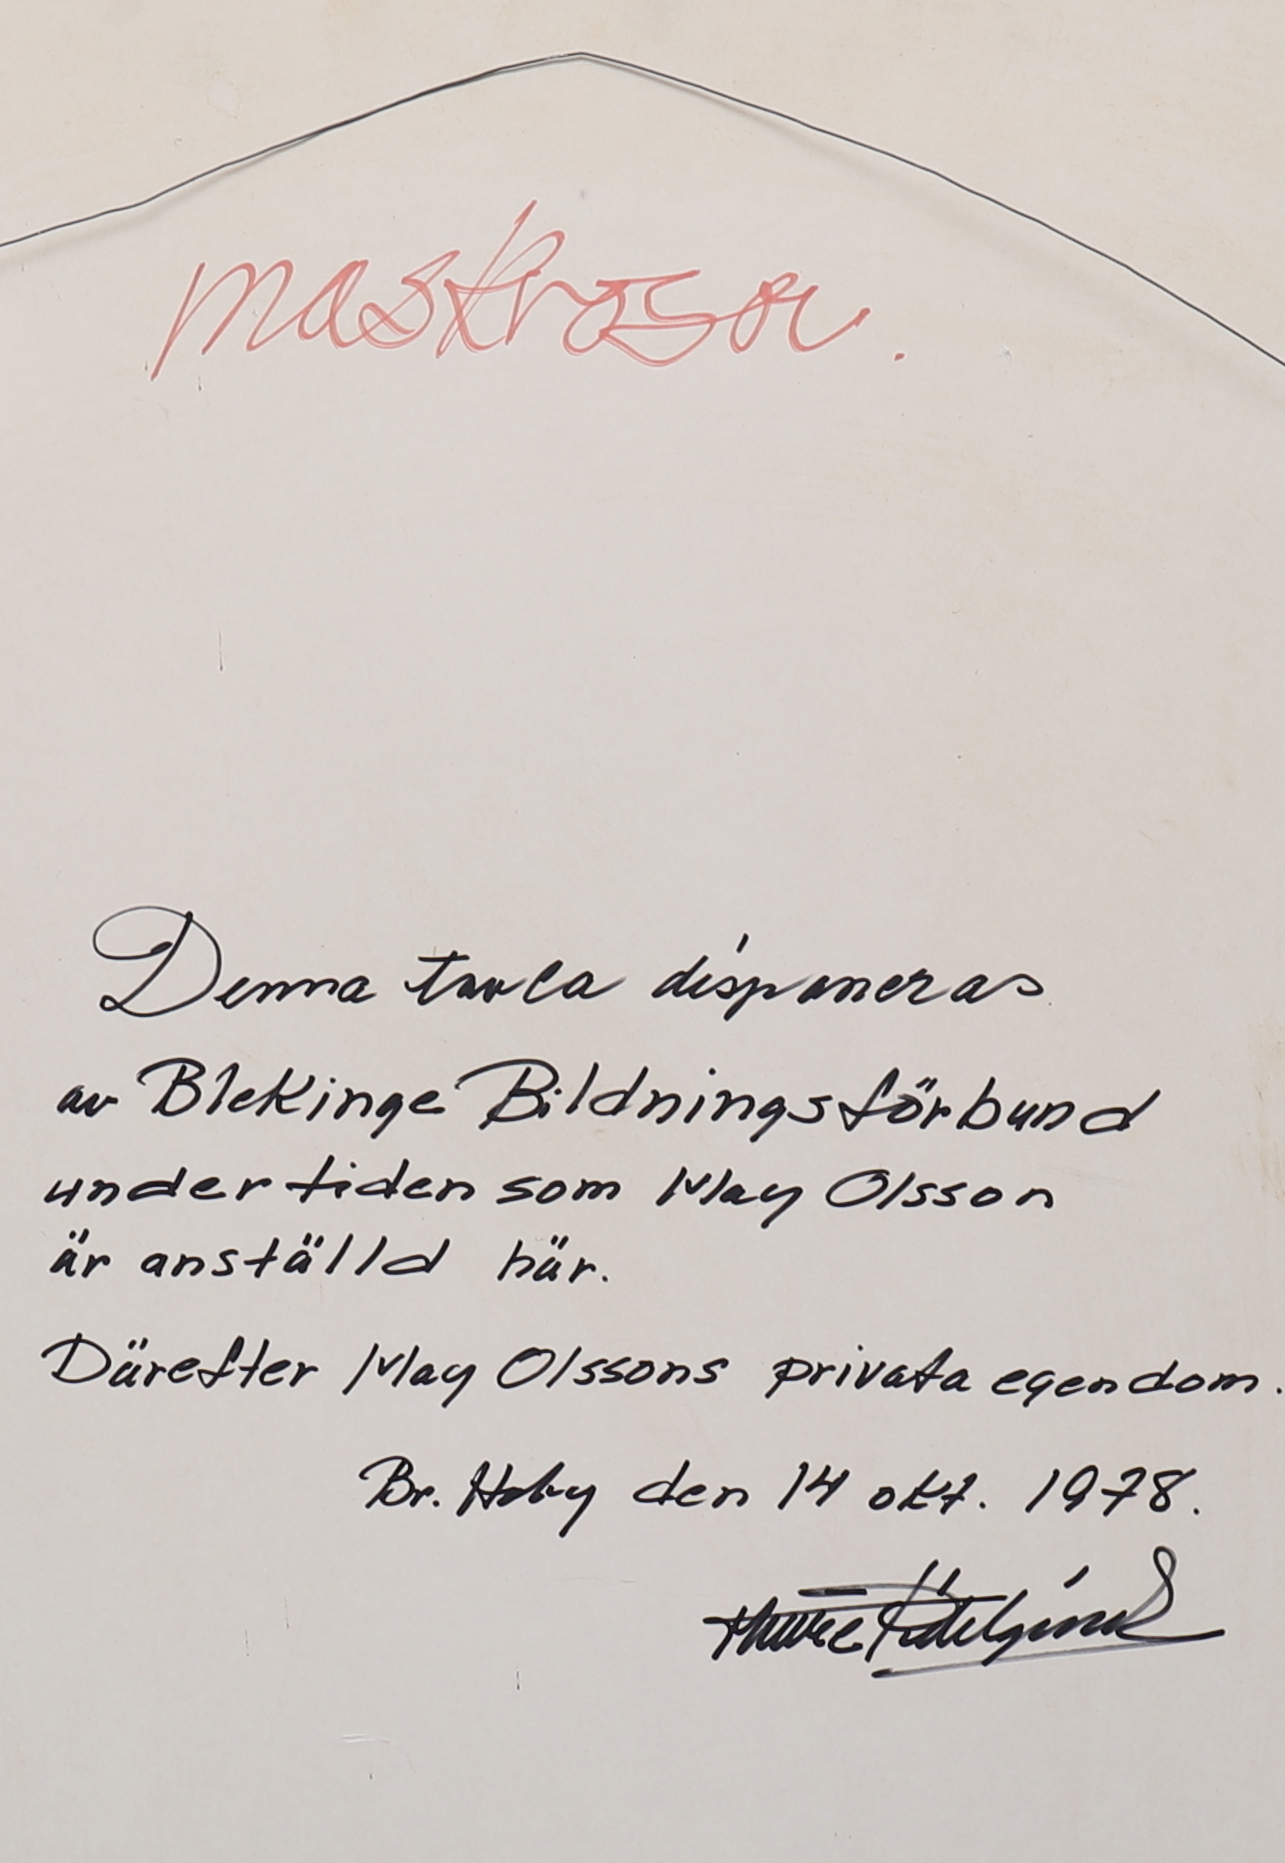 maskrosor.
Denna tavla disponeras
av Blekinge Bildningsförbund
under tiden som May Olsson
är anställd här.
Därefter May Olssons privata egendom.
Br. Hoby den 14 okt. 1978.
Thure